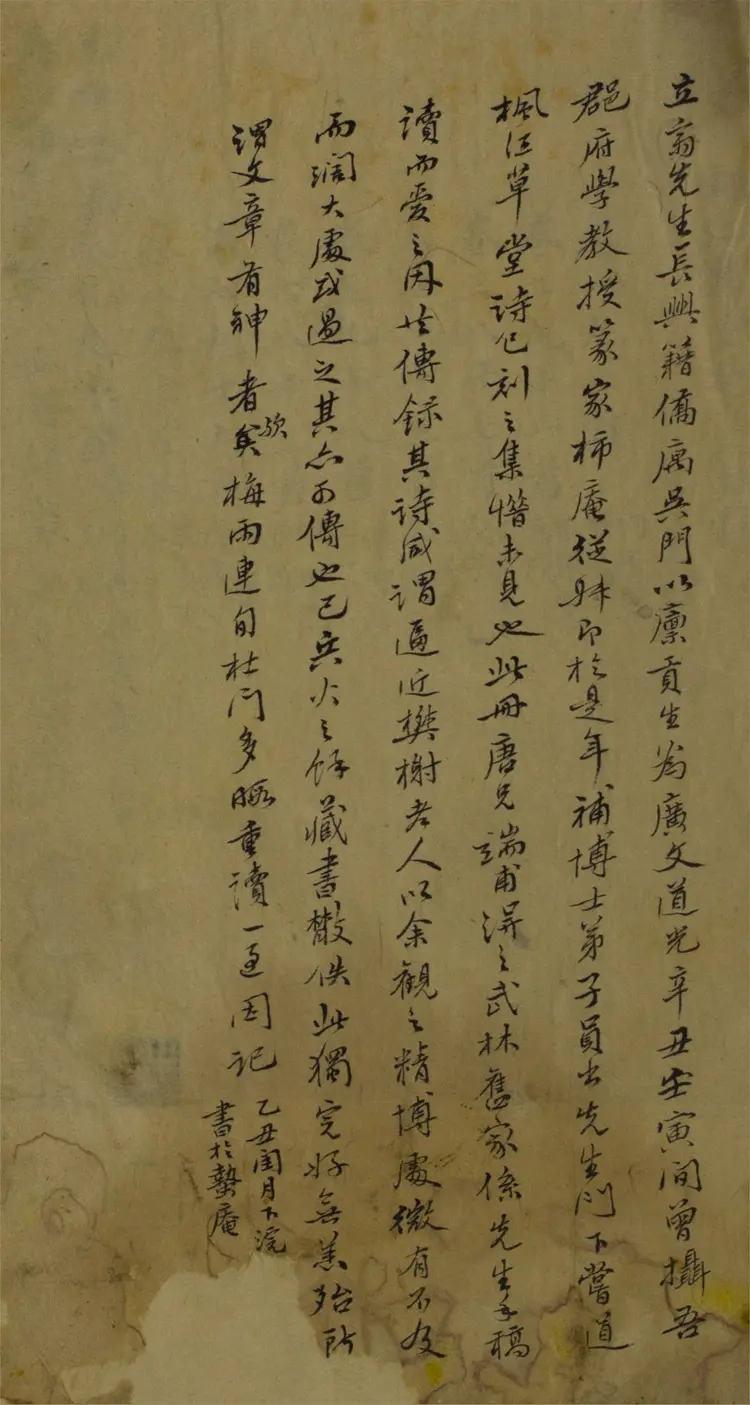 立翁先生長興籍僑寓吳門以廩貢生為廣文道光辛丑壬寅間曾攝吾
邑府學教授篆家柿庵從姊即於是年補博士弟子員出先生門下嘗道
楓江草堂詩已刻之集惜未見也此冊唐兄端甫得之武林舊家係先生手稿
讀而愛之因共傳錄其詩咸謂逼近樊榭老人以余觀之精博處微有不及
而濶大處或過之其亦可傳也已兵火之餘藏書散佚此獨完好無恙殆所
謂文章有神者矣歟梅雨連旬杜門多暇重讀一過因記
乙丑閏月下浣
書於蟄庵